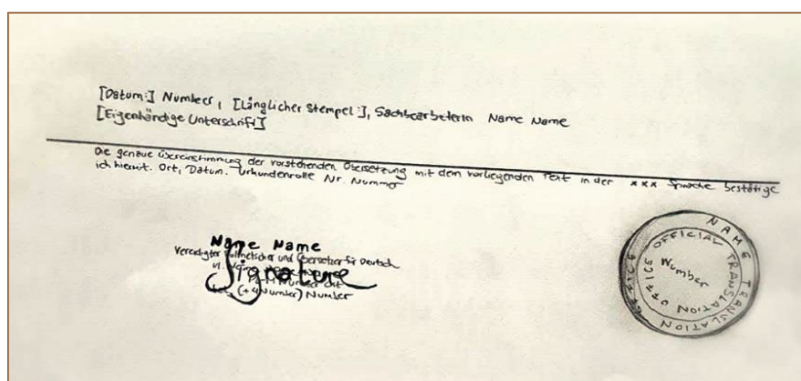 [Datum:] Number, [Länglicher Stempel:], Sachbearbeterin Name Name
[Eigenhändige Unterschrift]
Die genaue Übereinstimmung der vorstehenden Übersetzung mit dem vorliegenden Text in der xxx Sprache bestätige
ich hiermit. Ort, Datum. Urkundenrolle Nr. Nummer
Name Name
Vereidigter Dolmetscher und Übersetzer für Deutsch
ul.
Signature
Number
(+4Number) Number
NAME TRANSLATION OFFICE
OFFICIAL TRANSLATION OFFICE
Number